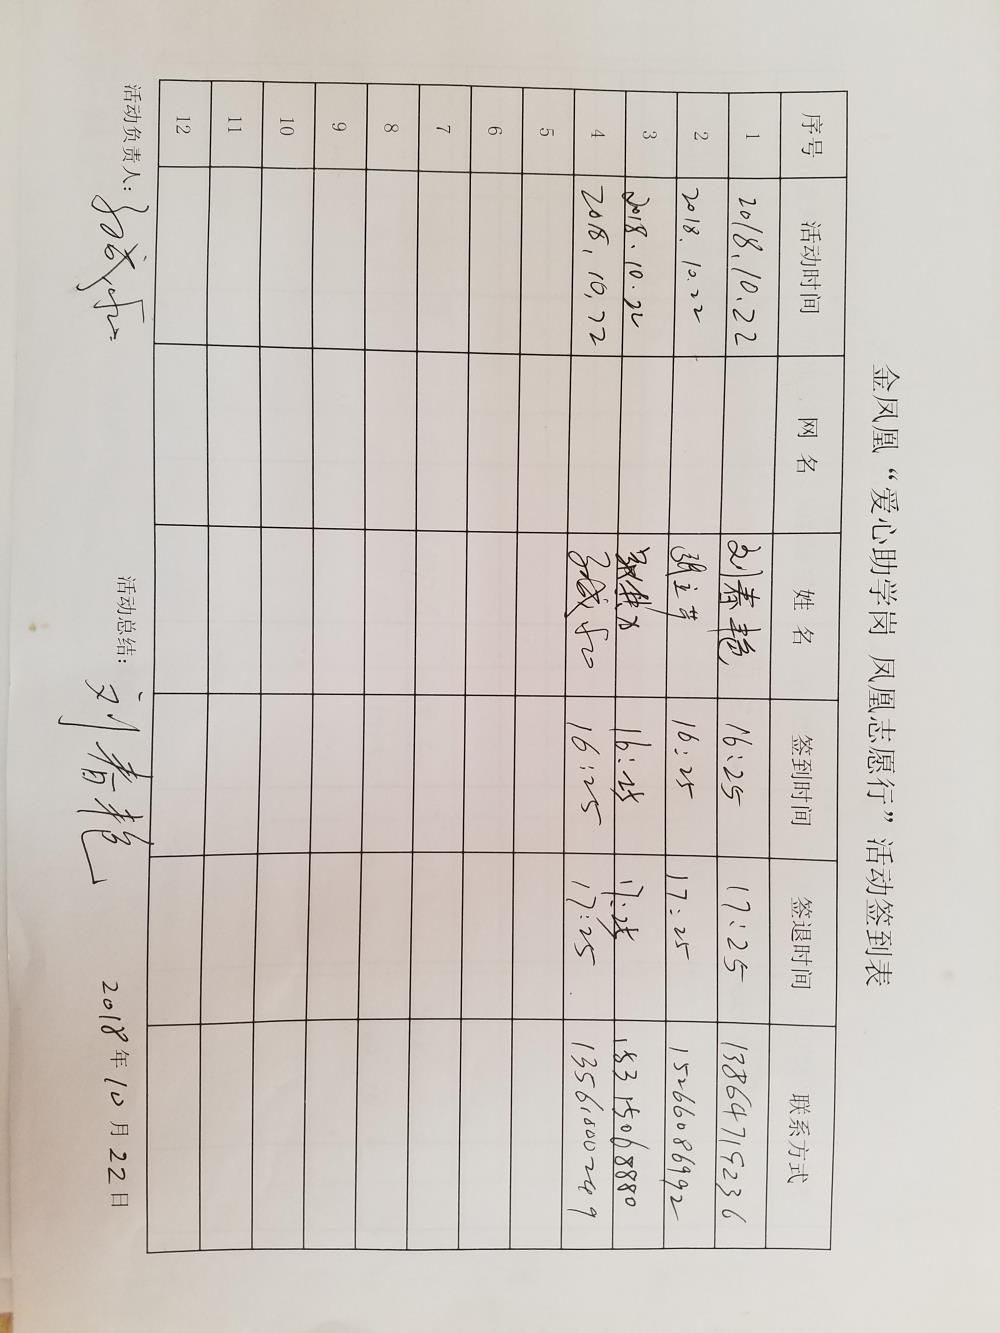 金凤凰“爱心助学岗 凤凰志愿行”活动签到表
序号 活动时间 网 名 姓 名 签到时间 签退时间 联系方式
1 2018.10.22 刘春艳 16:25 17:25 13864715236
2 2018.10.22 16:25 17:25 15266086992
3 2018.10.22 16:25 17:25 18315068880
4 2018.10.22 16:25 17:25 13561600249
5
6
7
8
9
10
11
12
活动负责人: 活动总结: 刘春艳 2018年10月22日